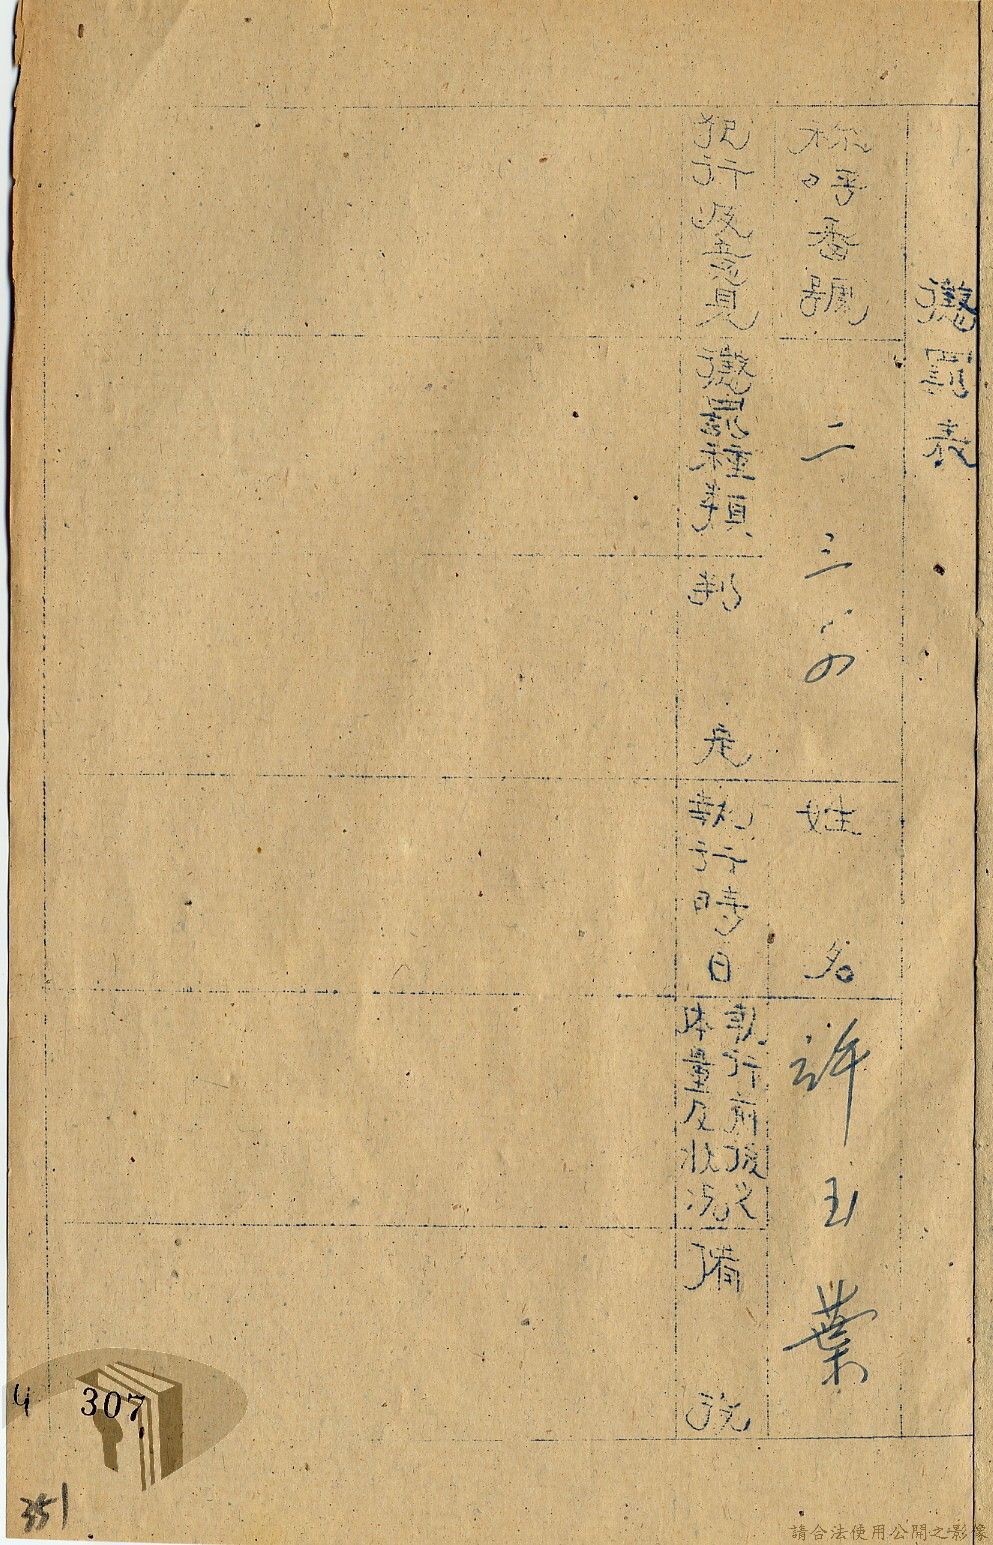 懲罰表
稱呼番號 二三 姓名 許玉葉
犯行及意見
懲罰種類
執行時日
執行前後之
体量及狀況
備
307
351
請合法使用公開之影像